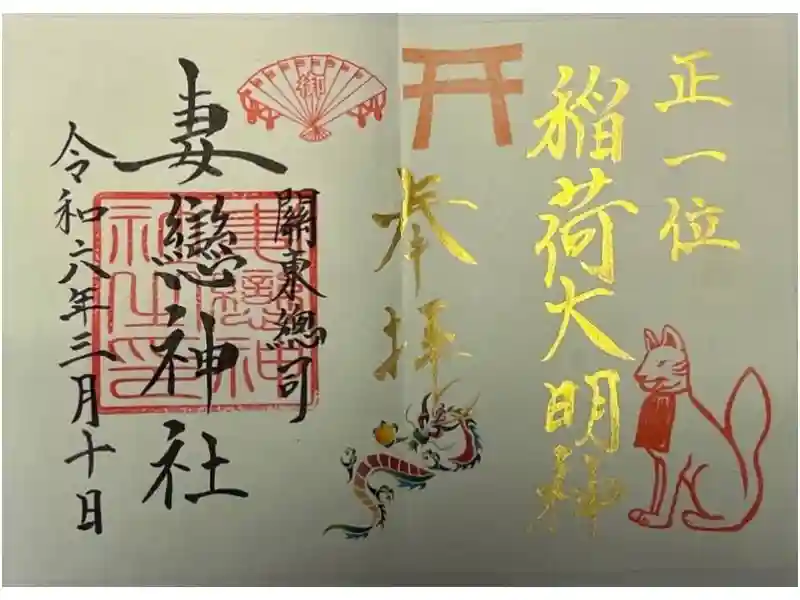 正一位
稲荷大明神
奉拝
關東總司
妻戀神社
令和六年三月十日
御
妻戀神
社之印